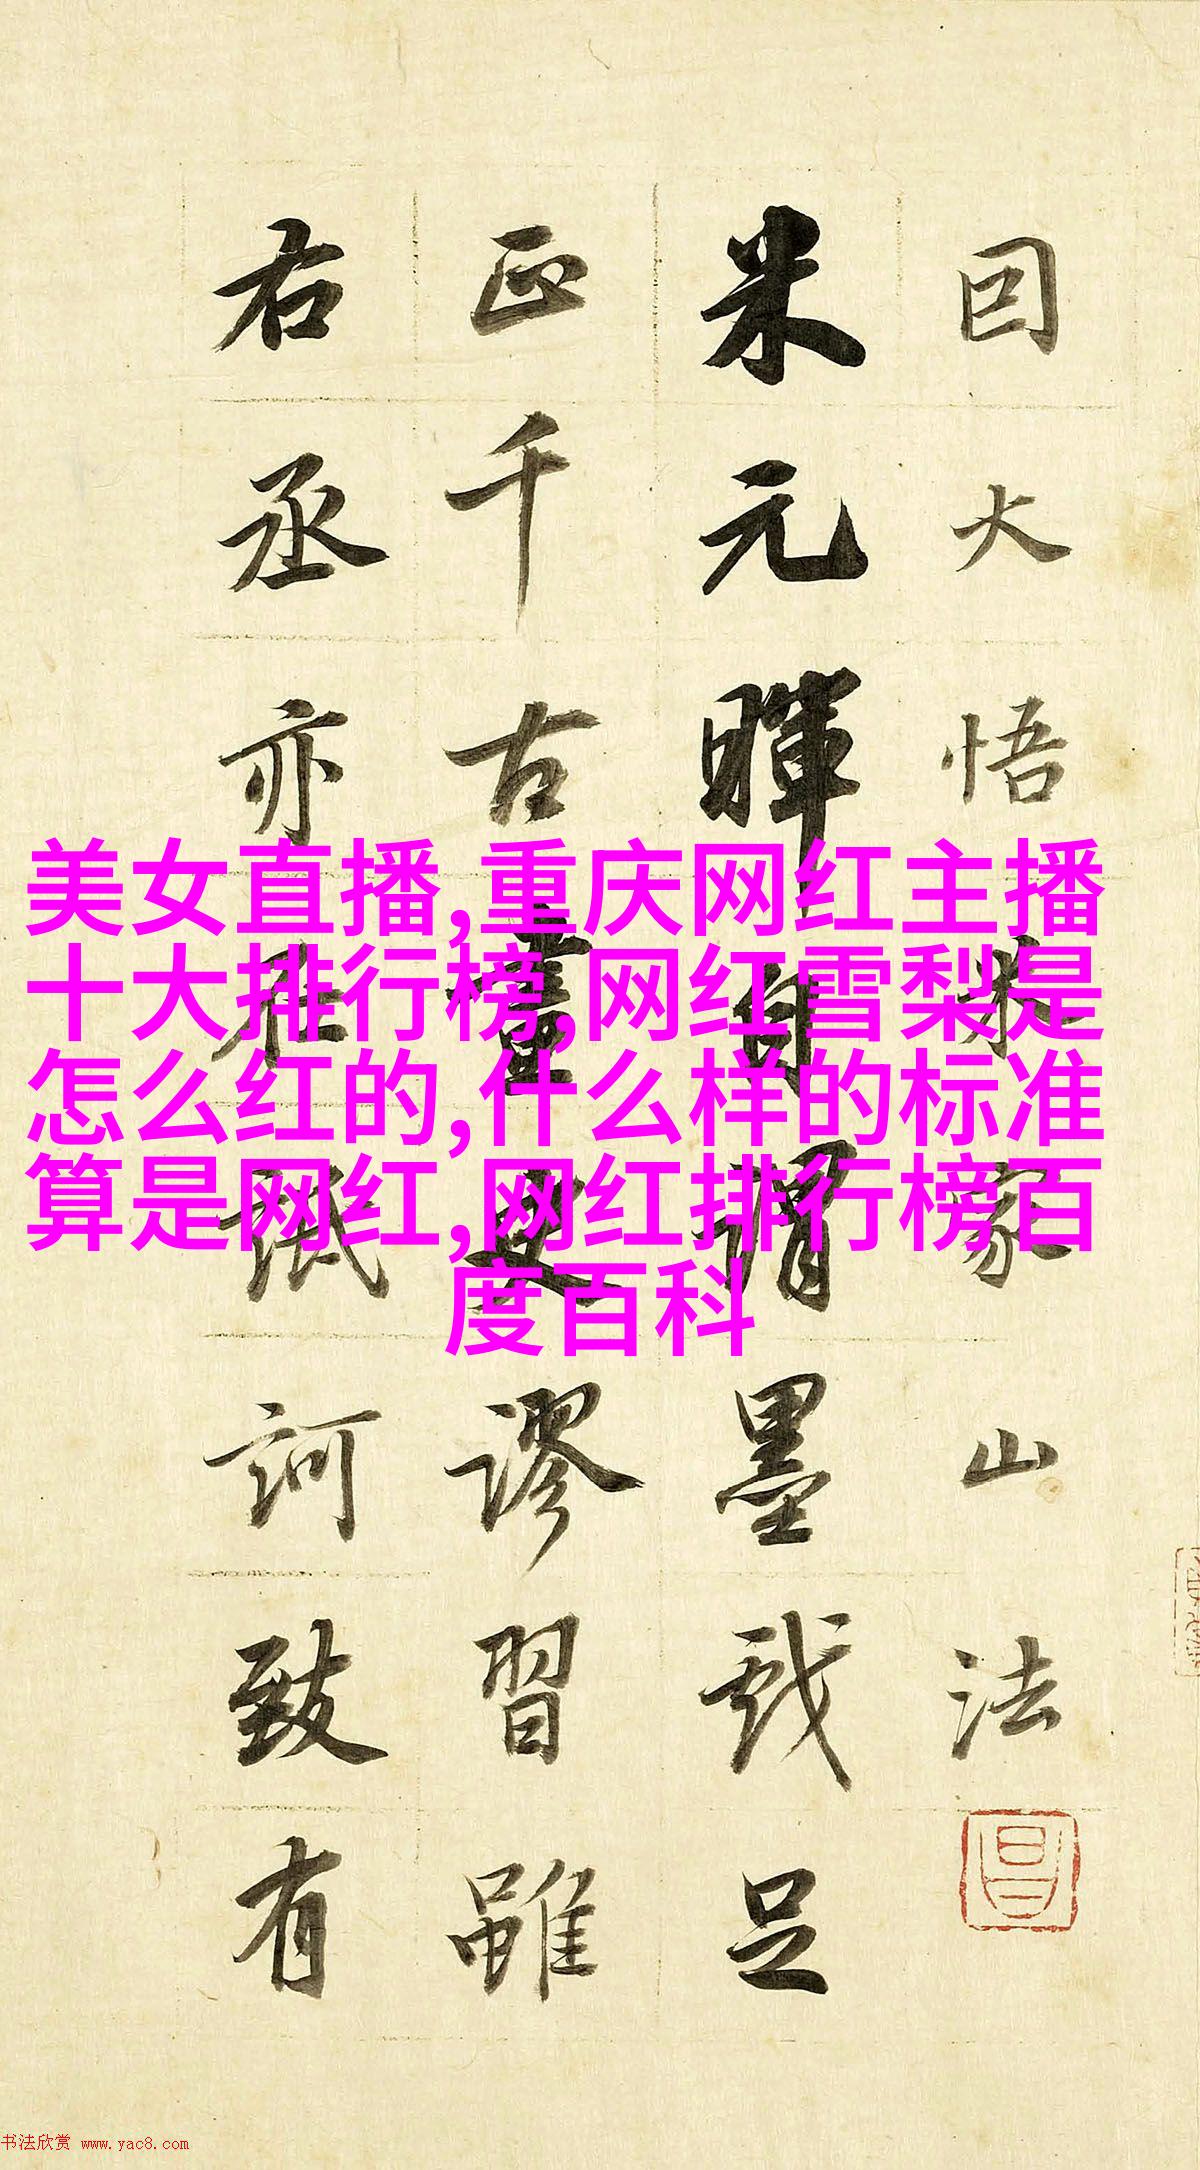 因大悟米家山法
米元暉自謂墨戲足
正千古畫史謬習雖
右丞亦在詆訶致有
美女直播,重庆网红主播
十大排行榜,网红雪梨是
怎么红的,什么样的标准
算是网红,网红排行榜百
度百科
书法欣赏 www.yac8.com